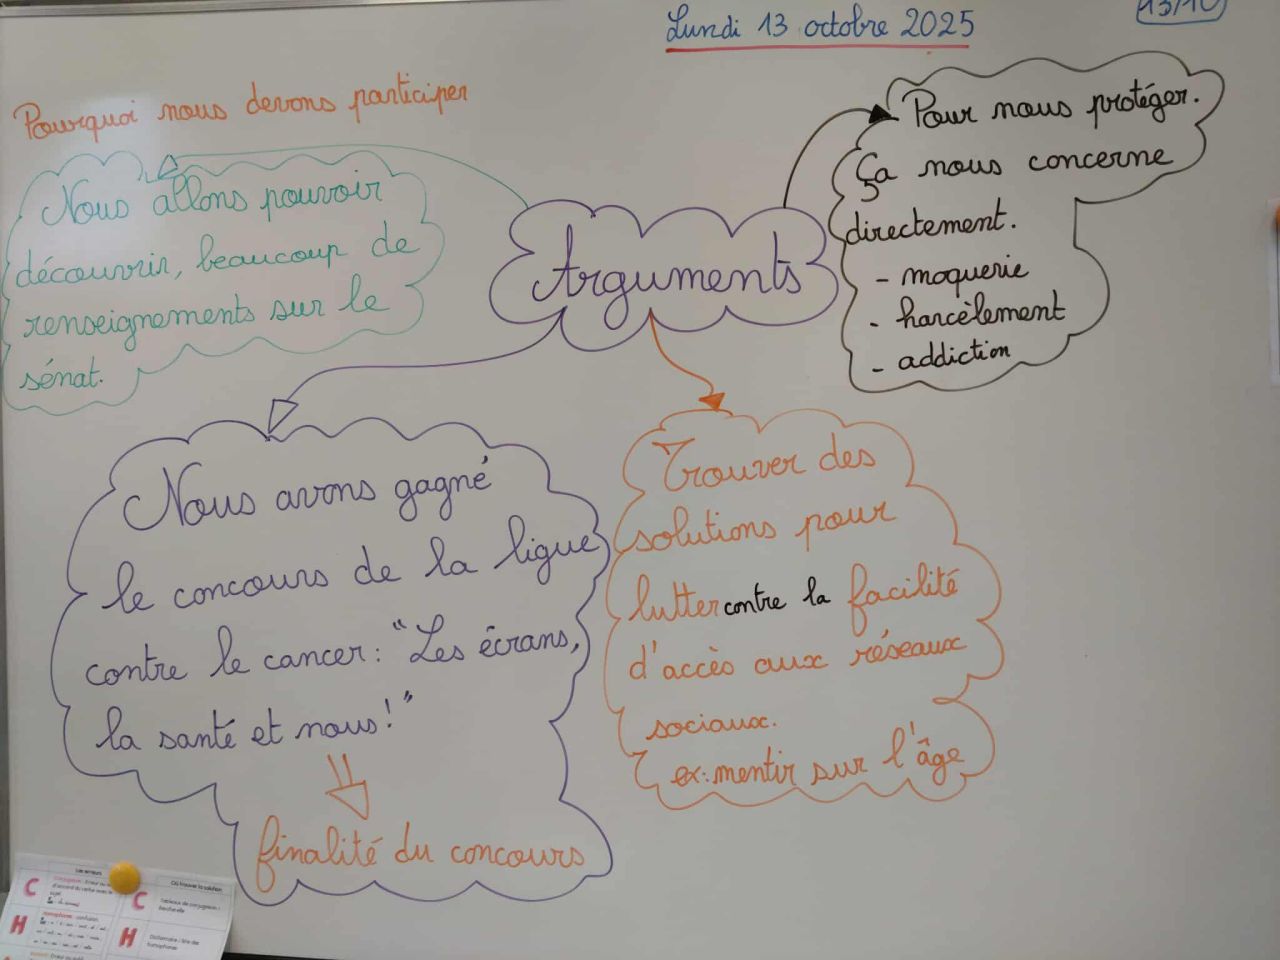 Lundi 13 octobre 2025
13/10
Pourquoi nous devons participer
Nous allons pouvoir
découvrir, beaucoup de
renseignements sur le
sénat.
Arguments
Pour nous protéger.
Ça nous concerne
directement.
- moquerie
- harcèlement
- addiction
Nous avons gagné
le concours de la ligue
contre le cancer : "Les écrans,
la santé et nous !"
finalité du concours
Trouver des
solutions pour
lutter contre la facilité
d'accès aux réseaux
sociaux.
ex: mentir sur l'âge
Les erreurs
Où trouver la solution
C
C
Tableaux de conjugaison /
H
H
Dictionnaire / liste des
homophones